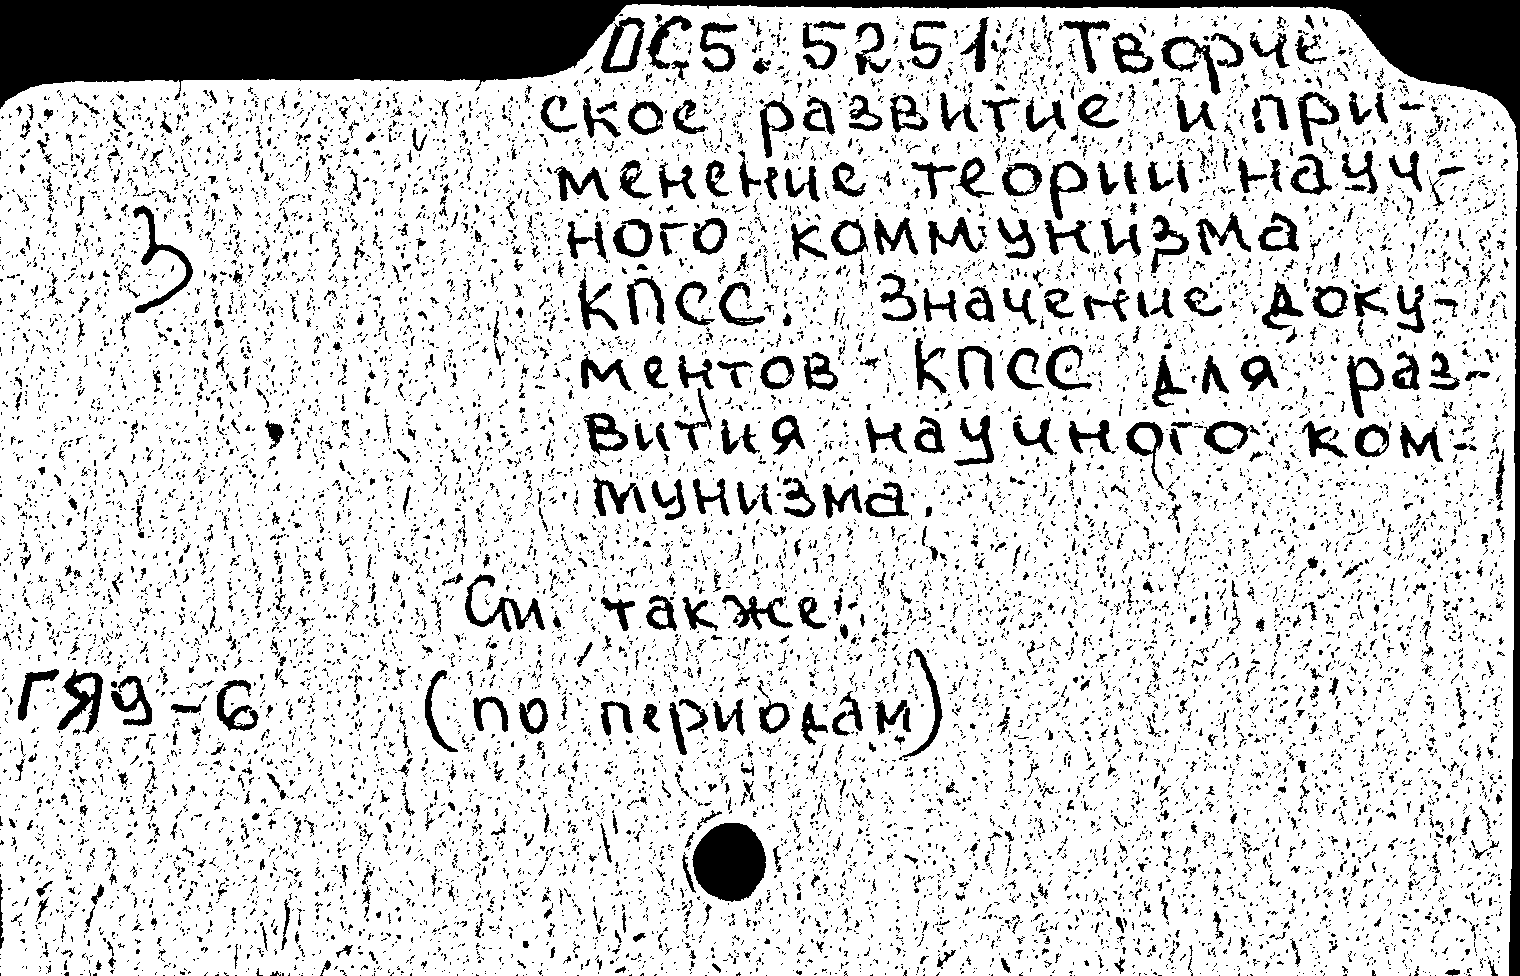 ДС5.5251 Творче
ское развитие и при-
менение теории науч-
ного коммунизма
КПСС. Значение доку-
ментов КПСС для раз-
вития научного ком-
мунизма.
З
См. также:
ГЯ9-6 (по периодам)